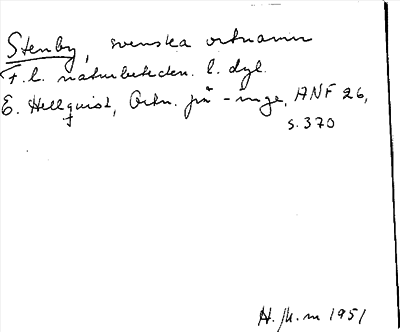 Stenby, svenska ortnamn
F. l. naturbeteckn. l. dyl.
E. Hellquist, Ortn. på -inge, ANF 26,
s. 370
H. 1951